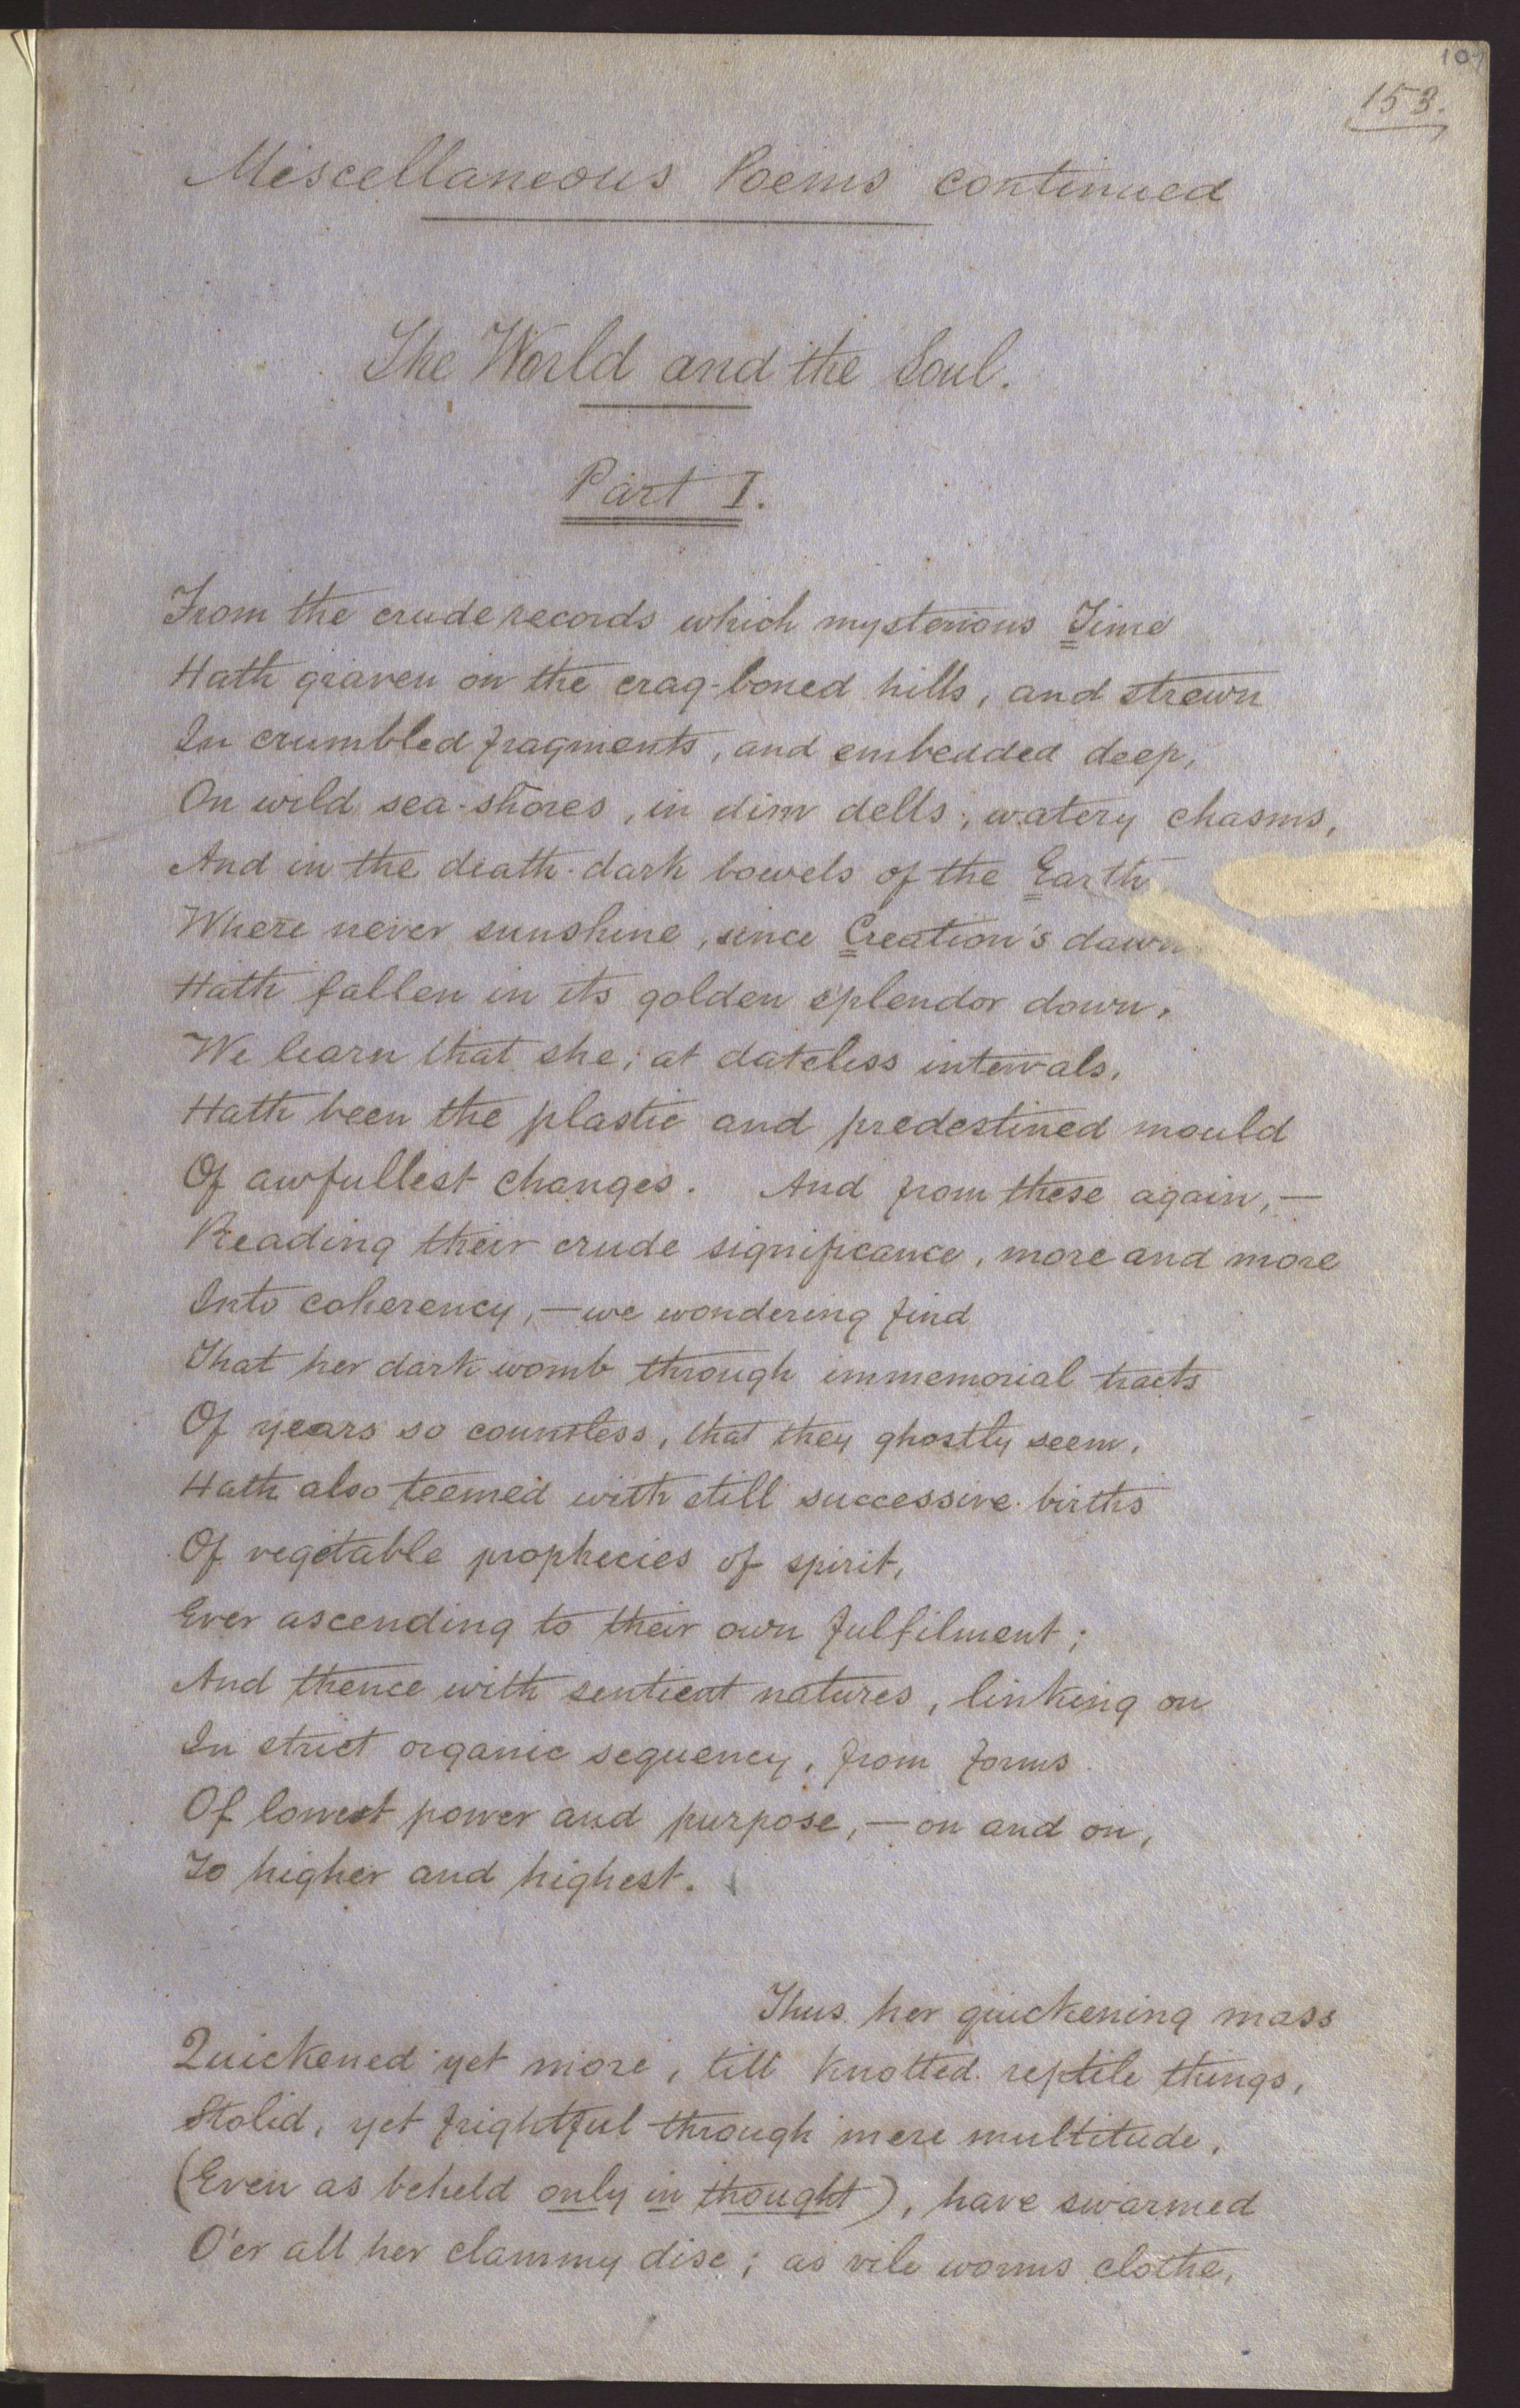 107
153.
Miscellaneous Poems continued
The World and the Soul.
Part I.
From the crude records which mysterious Time
Hath graven on the crag-boned hills, and strewn
In crumbled fragments, and embedded deep,
On wild sea-shores, in dim dells, watery chasms,
And in the death-dark bowels of the Earth
Where never sunshine, since Creation's dawn
Hath fallen in its golden splendor down,
We learn that she, at dateless intervals,
Hath been the plastic and predestined mould
Of awfullest changes. And from these again,—
Reading their crude significance, more and more
Into coherency,—we wondering find
That her dark womb through immemorial tracts
Of years so countless, that they ghostly seem,
Hath also teemed with still successive births
Of vegetable prophecies of spirit,
Ever ascending to their own fulfilment;
And thence with sentient natures, linking on
In strict organic sequency, from forms
Of lowest power and purpose,—on and on,
To higher and highest.
Thus her quickening mass
Quickened yet more, till knotted reptile things,
Stolid, yet frightful through mere multitude,
(Even as beheld only in thought), have swarmed
O'er all her clammy disc; as vile worms clothe,